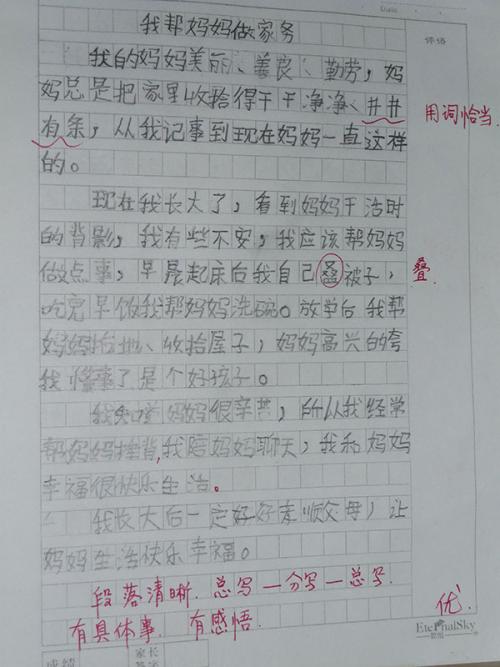 我帮妈妈做家务
评语
我的妈妈美丽、善良、勤劳,妈
妈总是把家里收拾得干干净净、井井
用词恰当.
有条,从我记事到现在妈妈一直这样
的。
现在我长大了,看到妈妈干活时
的背影,我有些不安,我应该帮妈妈
做点事,早晨起床后我自己叠被子,
叠.
吃完早饭我帮妈妈洗碗。放学后我帮
妈妈拾地、收拾屋子,妈妈高兴的夸
我懂事了是个好孩子。
我知道妈妈很辛苦,所以我经常
帮妈妈捶背,我陪妈妈聊天,我和妈妈
幸福很快乐生活。
我长大后一定好好孝顺父母,让
妈妈生活快乐幸福。
段落清晰.总写一分写一总写.
有具体事.有感悟.
优.
EternalSky
成绩
家长
签字